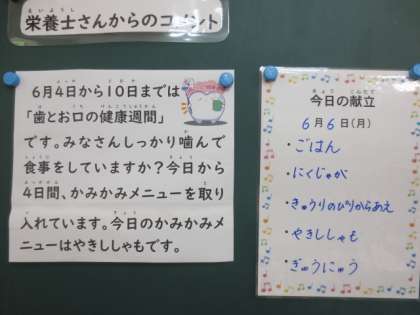 栄養士さんからのコメント
6月4日から10日までは
「歯とお口の健康週間」
です。みなさんしっかり噛んで
食事をしていますか?今日から
4日間、かみかみメニューを取り
入れています。今日のかみかみメ
ニューはやきししゃもです。
今日の献立
6月6日(月)
・ごはん
・にくじゃが
・きゅうりのぴりからあえ
・やきししゃも
・ぎゅうにゅう